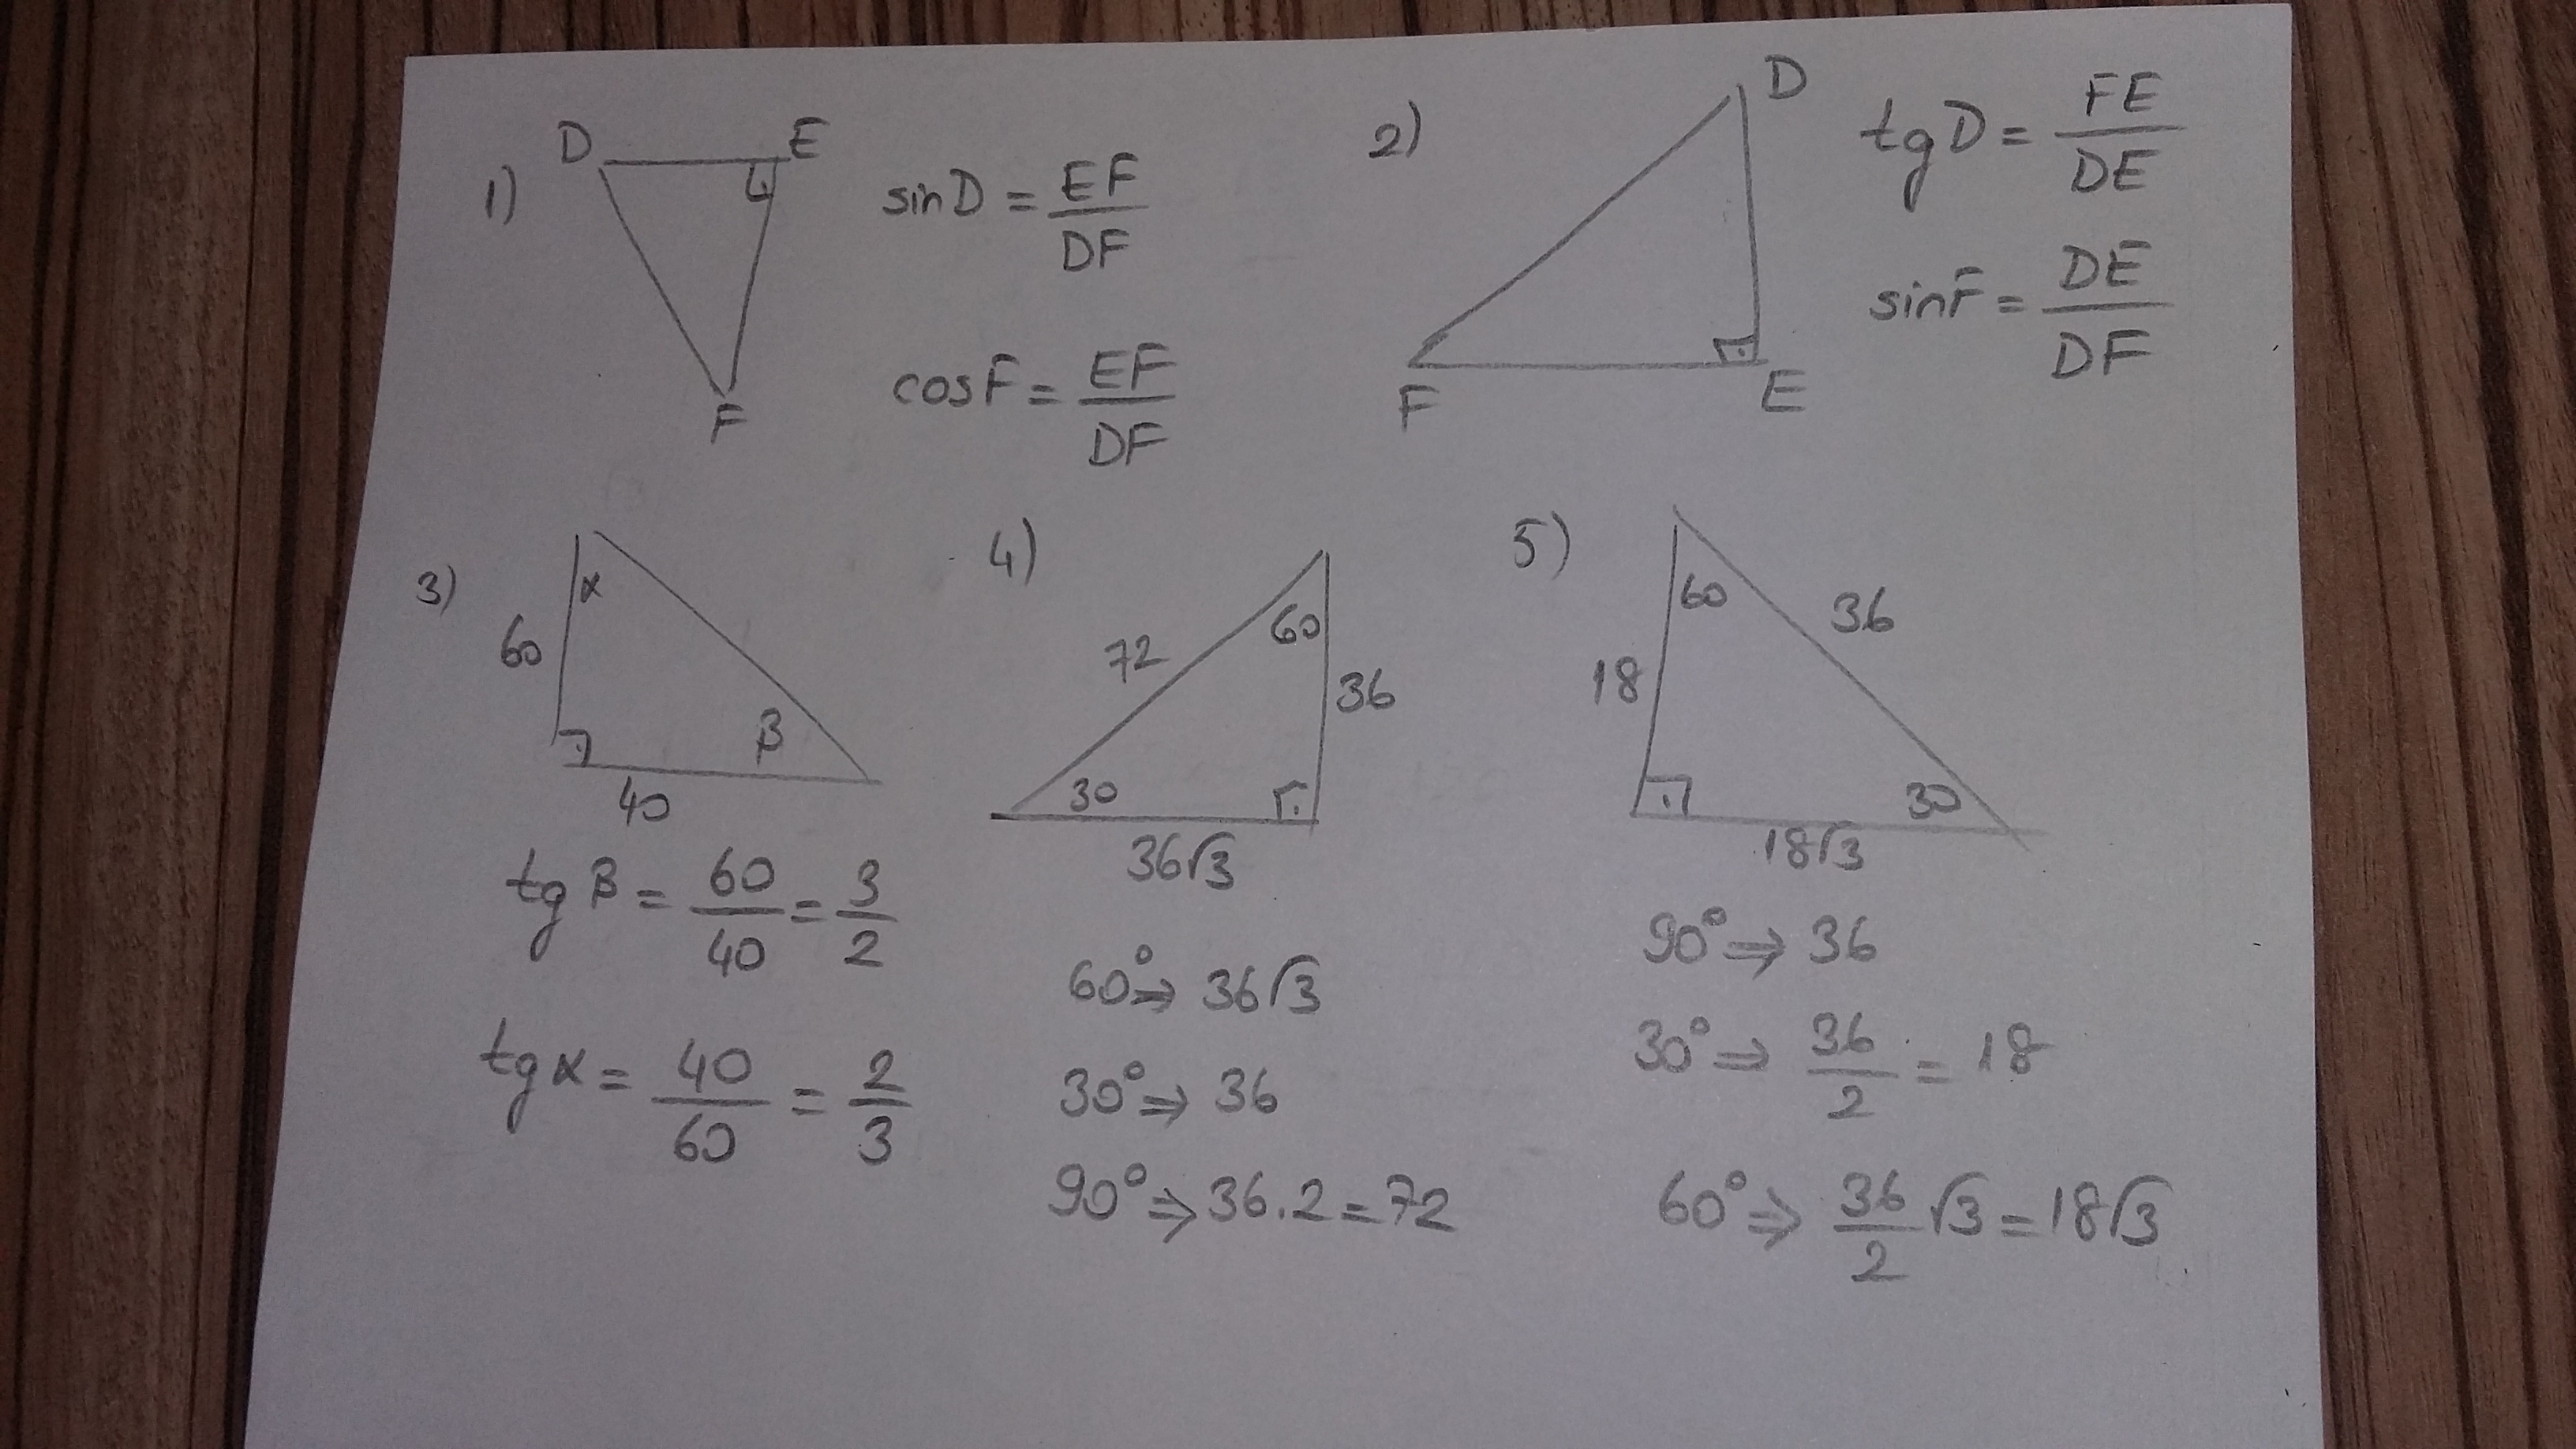 1)
D E
F
sinD = EF/DF
cosF = EF/DF
2)
D
F E
tgD = FE/DE
sinF = DE/DF
3)
α
60
β
40
tg β = 60/40 = 3/2
tg α = 40/60 = 2/3
4)
60
72
36
30
36√3
60° ⇒ 36√3
30° ⇒ 36
90° ⇒ 36.2 = 72
5)
60
36
18
30
18√3
90° ⇒ 36
30° ⇒ 36/2 = 18
60° ⇒ 36/2 √3 = 18√3